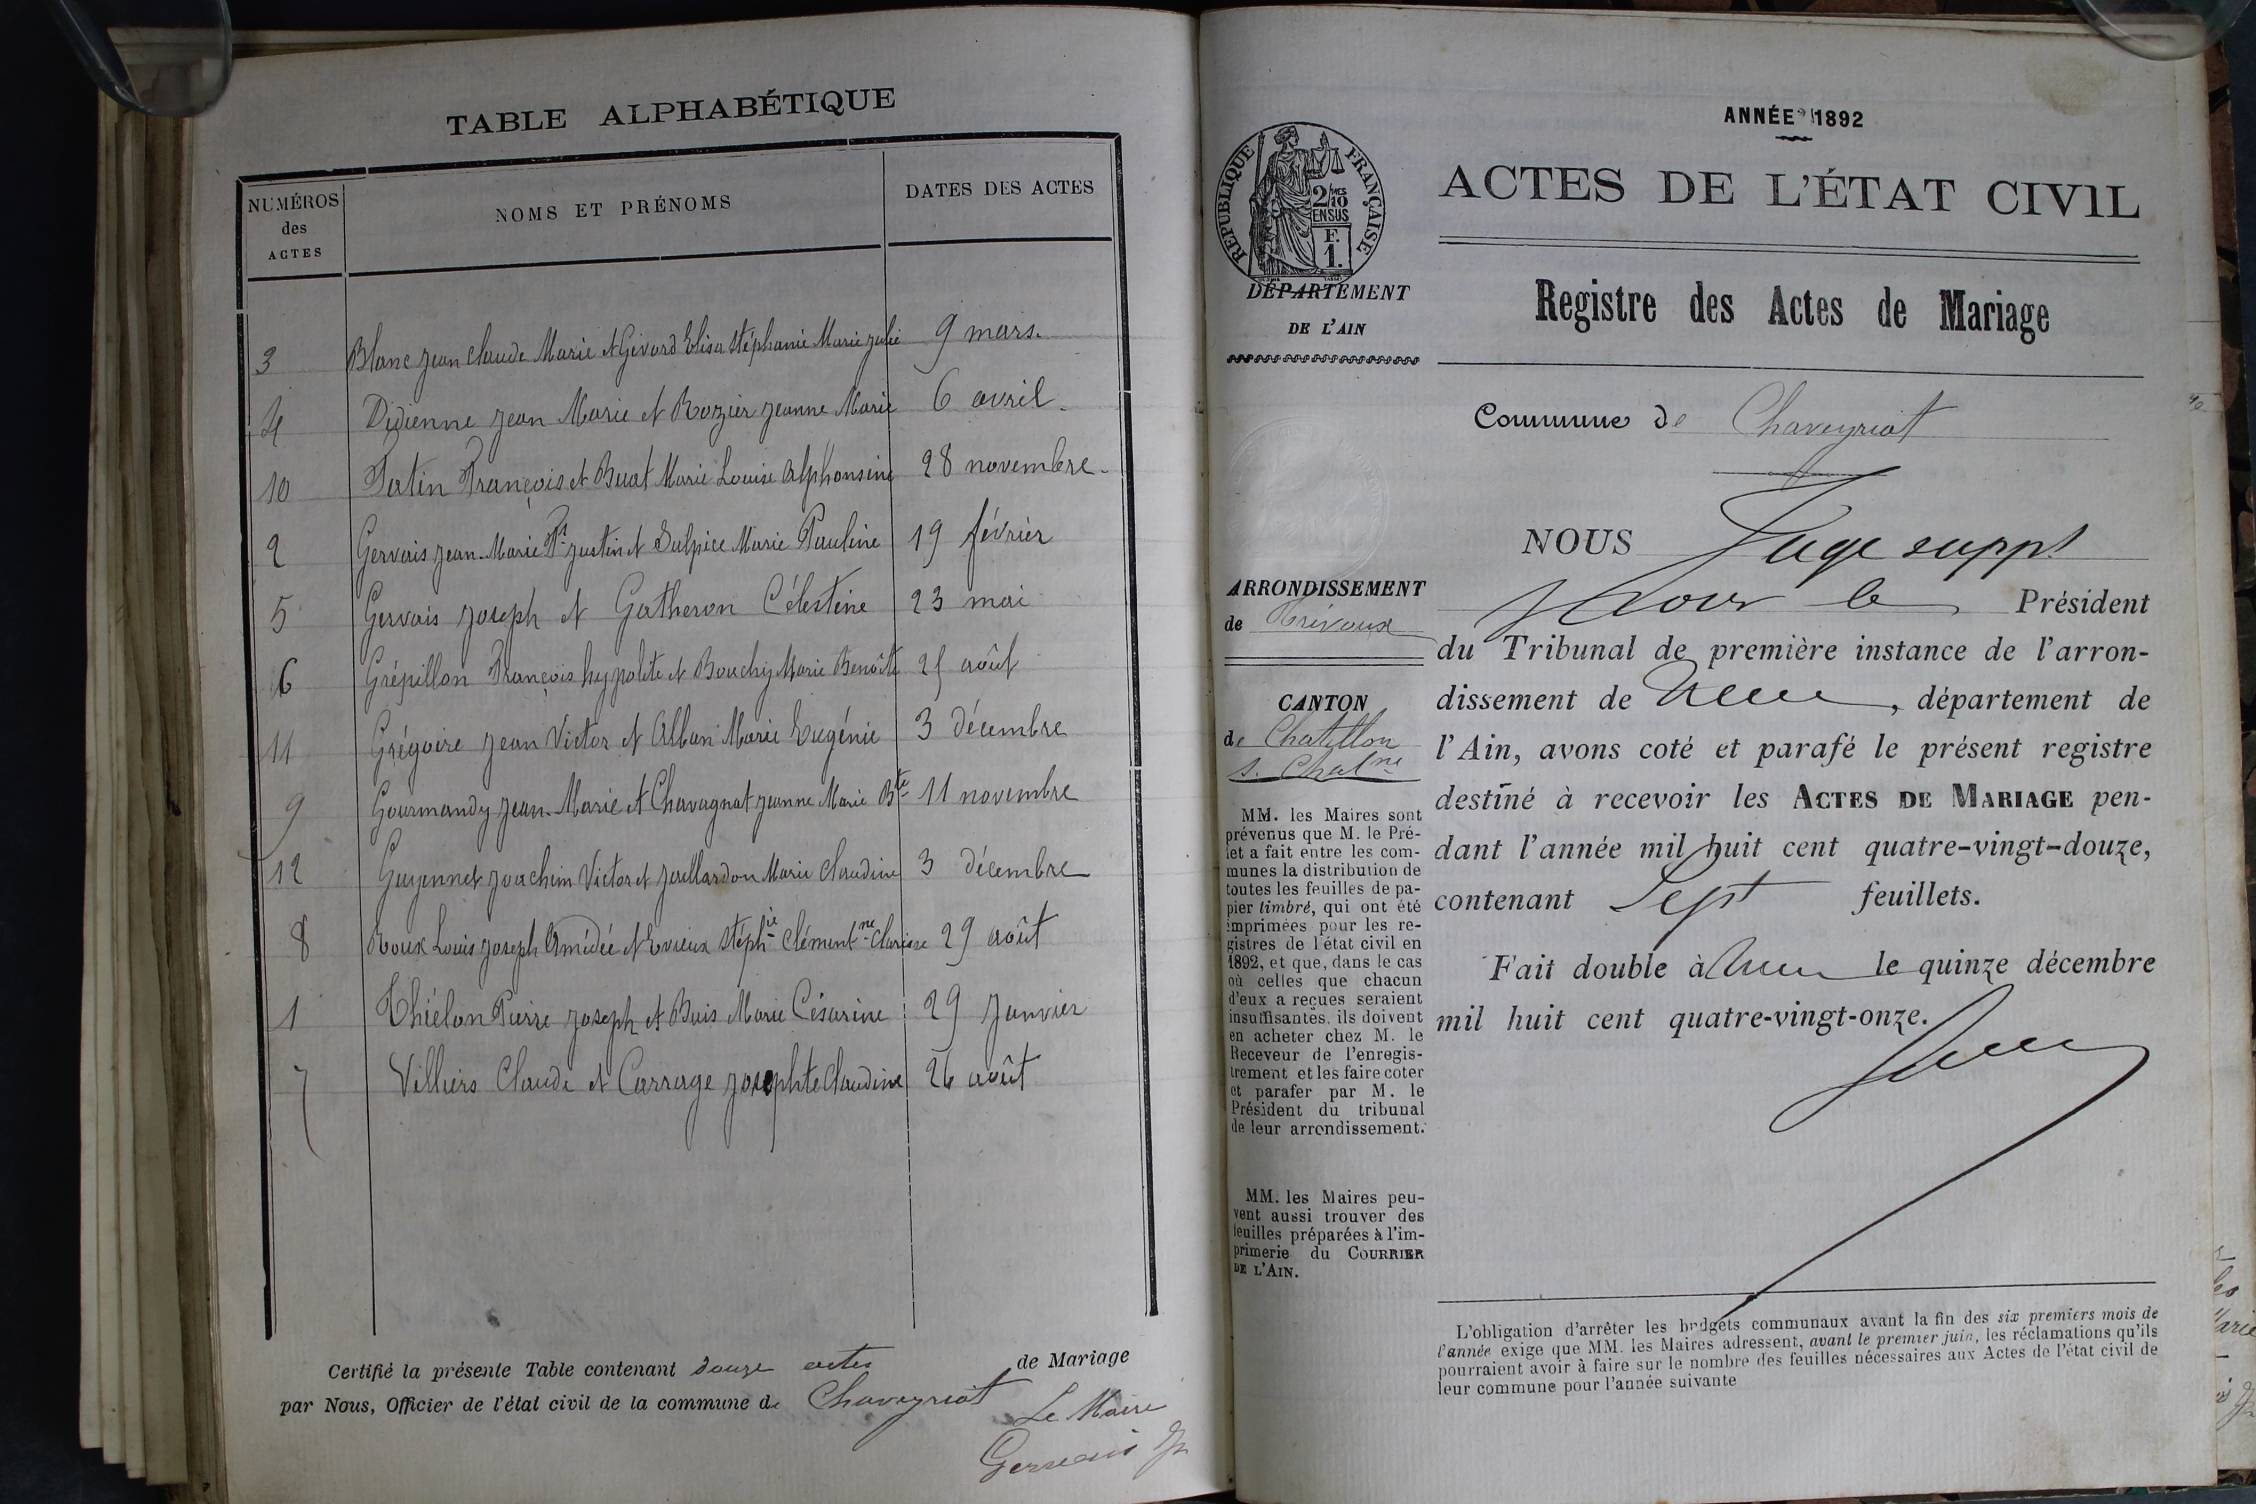 TABLE ALPHABÉTIQUE
NUMÉROS
des
ACTES
NOMS ET PRÉNOMS
DATES DES ACTES
3 Blanc Jean Claude Marie et Gevard Elisa Stéphanie Marie Julie 9 mars.
4 Didienne Jean Marie et Rozier Jeanne Marie 6 avril.
10 Fatin François et Buat Marie Louise Alphonsine 28 novembre.
2 Gervais Jean-Marie Justin et Sulpice Marie Pauline 19 février
5 Gervais Joseph et Gatheron Célestine 23 mai
6 Grépillon François hypolite et Bouchy Marie Benoîte 25 août
11 Grégoire Jean Victor et Alban Marie Eugénie 3 décembre
9 Gourmandy Jean-Marie et Chavagnat Jeanne Marie Bte 11 novembre
12 Guyennet Joachim Victor et Juillardon Marie Claudine 3 décembre
8 Roux Louis Joseph Amédée et Evrieux Stéphie Clémentne Clarisse 29 août
1 Thiélon Pierre Joseph et Buis Marie Césarine 29 Janvier
7 Villiers Claude et Carrage Josephte Claudine 26 août
Certifié la présente Table contenant douze actes de Mariage
par Nous, Officier de l'état civil de la commune de Chaveyriat
Le Maire
Gervais
ANNÉE 1892
RÉPUBLIQUE FRANÇAISE
2/10
EN SUS
F.
1.
ACTES DE L'ÉTAT CIVIL
DÉPARTEMENT
DE L'AIN
Registre des Actes de Mariage
Commune de Chaveyriat
ARRONDISSEMENT
de Trévoux
CANTON
de Chatillon
s. Chalne
MM. les Maires sont
prévenus que M. le Pré-
fet a fait entre les com-
munes la distribution de
toutes les feuilles de pa-
pier timbré, qui ont été
imprimées pour les re-
gistres de l'état civil en
1892, et que, dans le cas
où celles que chacun
d'eux a reçues seraient
insuffisantes, ils doivent
en acheter chez M. le
Receveur de l'enregis-
trement et les faire coter
et parafer par M. le
Président du tribunal
de leur arrondissement.
MM. les Maires peu-
vent aussi trouver des
feuilles préparées à l'im-
primerie du COURRIER
DE L'AIN.
NOUS Juge suppt
pour le Président
du Tribunal de première instance de l'arron-
dissement de , département de
l'Ain, avons coté et parafé le présent registre
destiné à recevoir les ACTES DE MARIAGE pen-
dant l'année mil huit cent quatre-vingt-douze,
contenant Sept feuillets.
Fait double à le quinze décembre
mil huit cent quatre-vingt-onze.
L'obligation d'arrêter les budgets communaux avant la fin des six premiers mois de
l'année exige que MM. les Maires adressent, avant le premier juin, les réclamations qu'ils
pourraient avoir à faire sur le nombre des feuilles nécessaires aux Actes de l'état civil de
leur commune pour l'année suivante